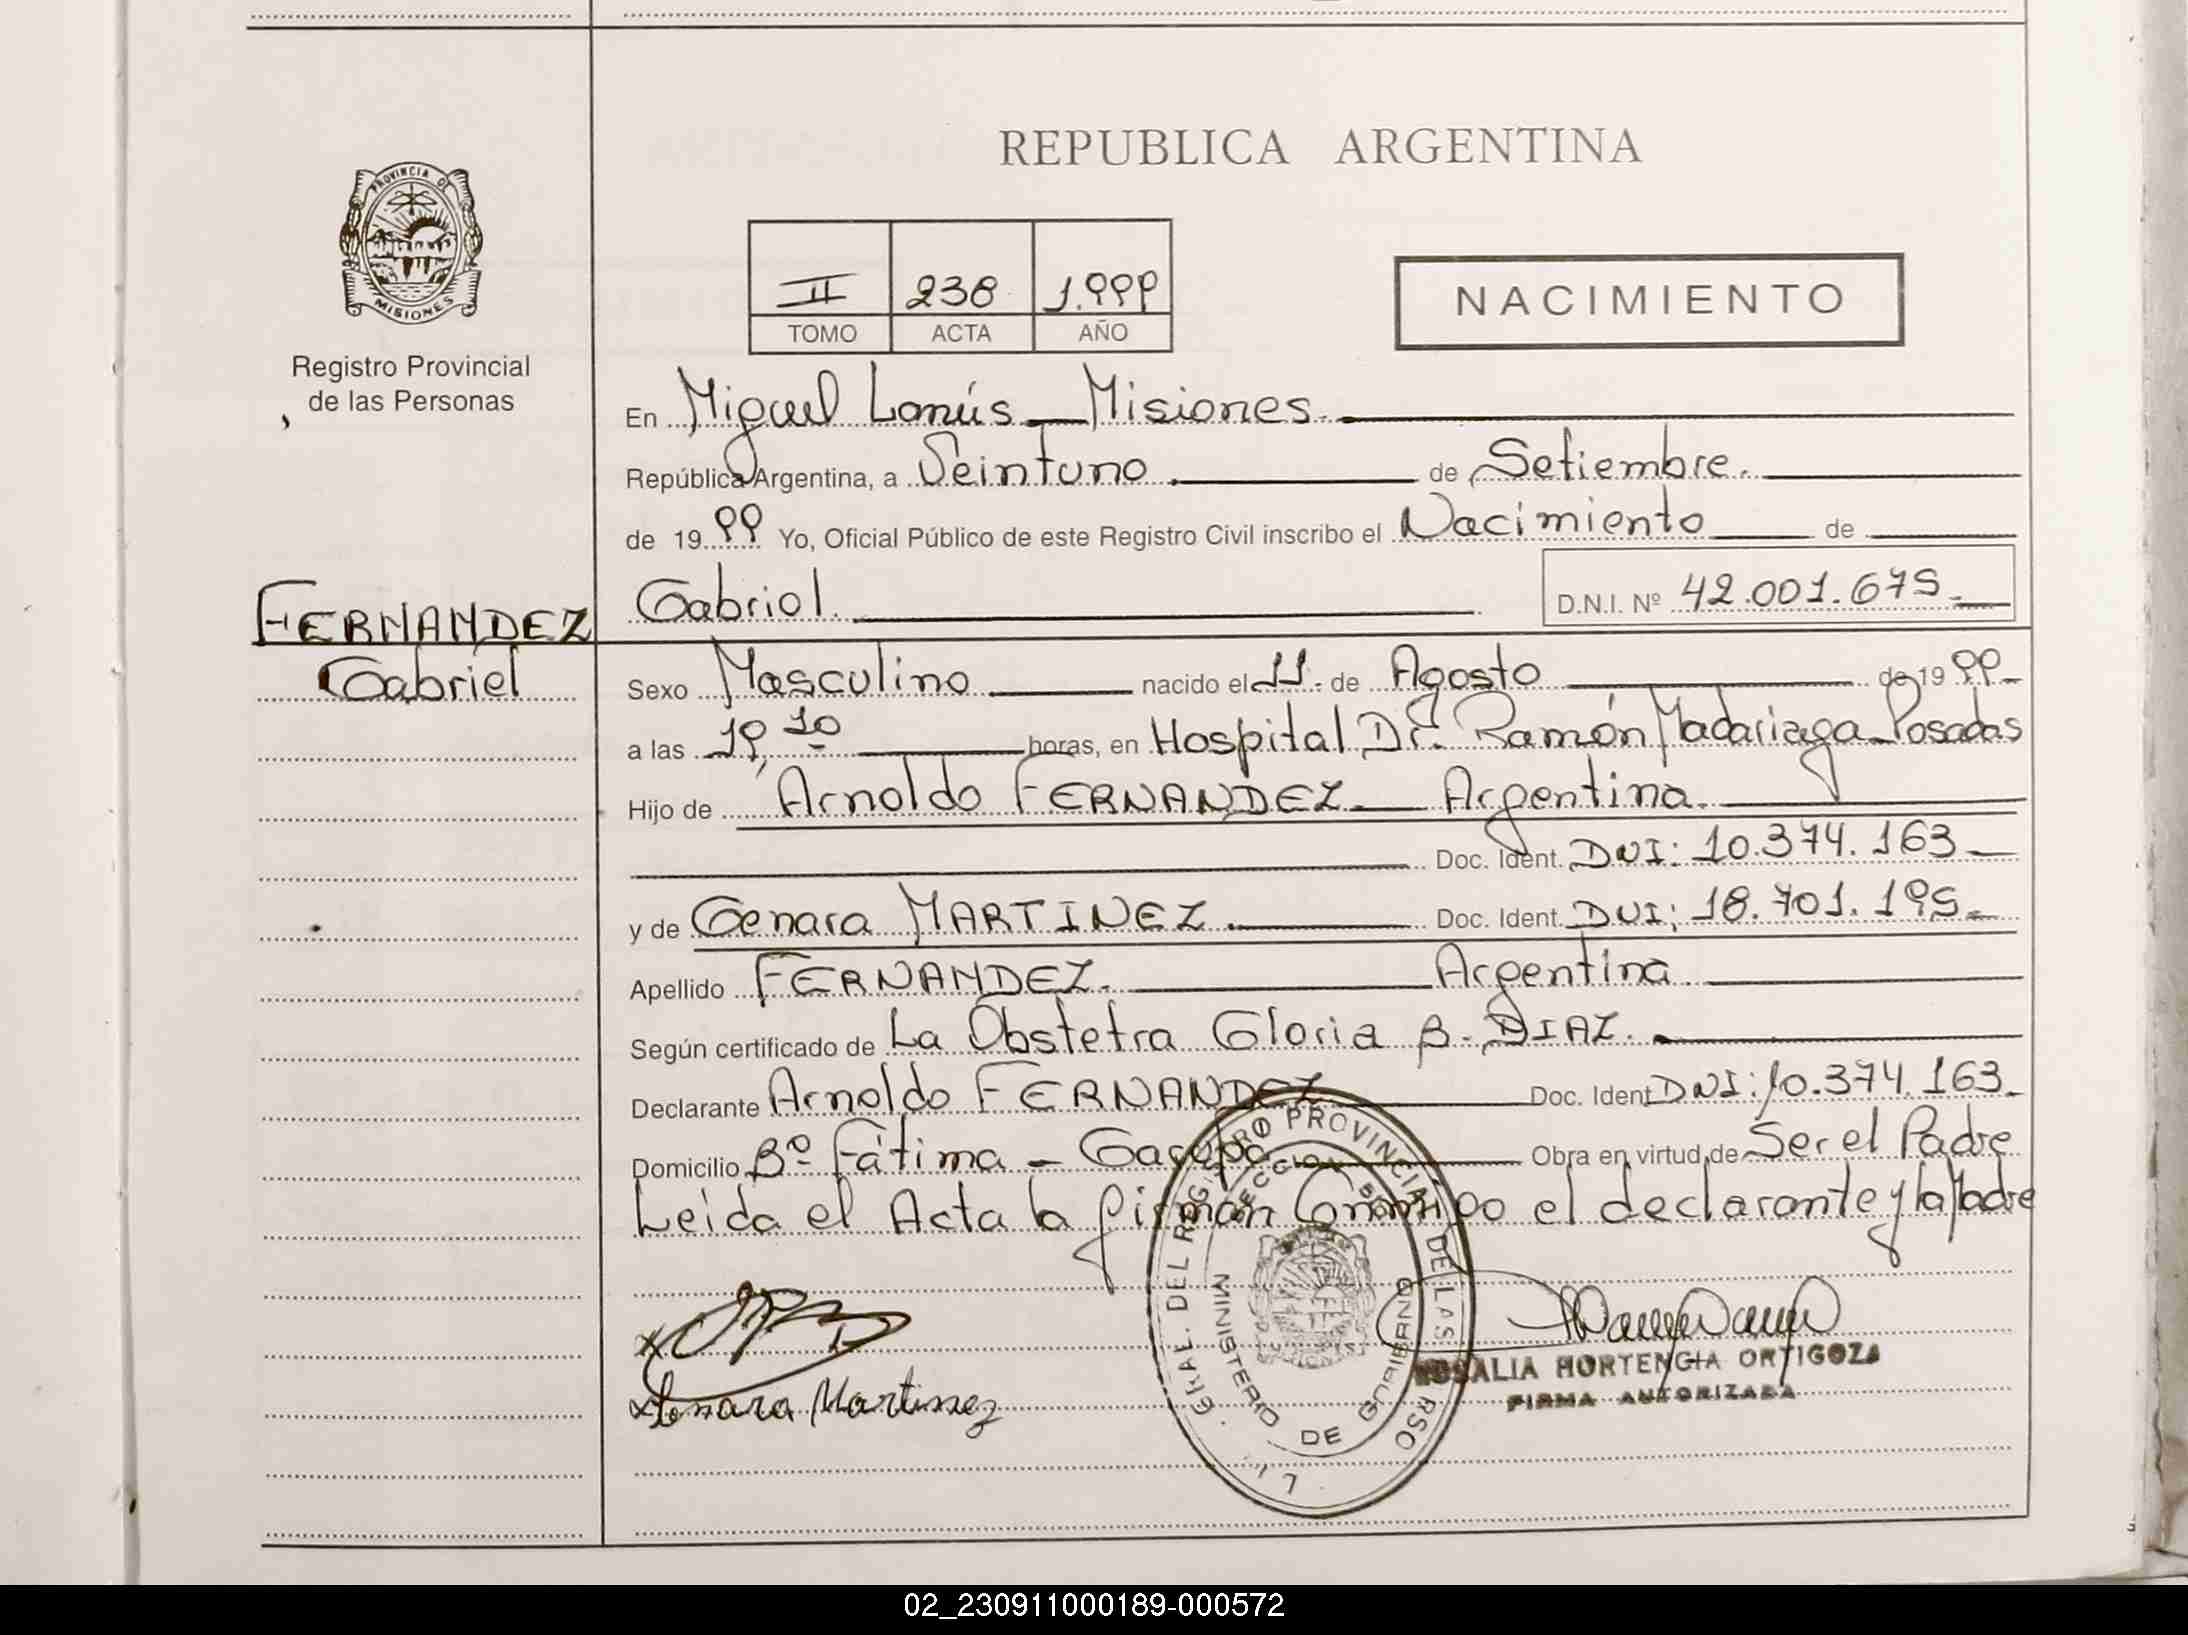 REPUBLICA ARGENTINA
PROVINCIA DE
MISIONES
Registro Provincial
de las Personas
II 238 1.999
TOMO ACTA AÑO
NACIMIENTO
En Miguel Lanús - Misiones.
República Argentina, a Veintuno de Setiembre.
de 1999 Yo, Oficial Público de este Registro Civil inscribo el Nacimiento de
FERNANDEZ
Gabriel
Gabriel.
D.N.I. Nº 42.001.675.
Sexo Masculino nacido el 11. de Agosto de 1999
a las 19,10 horas, en Hospital Dr. Ramón Madariaga - Posadas
Hijo de Arnoldo FERNANDEZ - Argentina.
Doc. Ident. DNI: 10.374.163
y de Genara MARTINEZ. Doc. Ident. DNI: 18.701.195.
Apellido FERNANDEZ. Argentina
Según certificado de La Obstetra Gloria B. DIAZ.
Declarante Arnoldo FERNANDEZ Doc. Ident DNI: 10.374.163.
Domicilio Bº Fátima - Garupá Obra en virtud de Ser el Padre
Leida el Acta la firman Conmigo el declarante y la Madre
GRAL. DEL REGISTRO PROVINCIAL DE LAS
MINISTERIO DE GOBIERNO
Genara Martinez
ROSALIA HORTENCIA ORTIGOZA
FIRMA AUTORIZADA
02_230911000189-000572